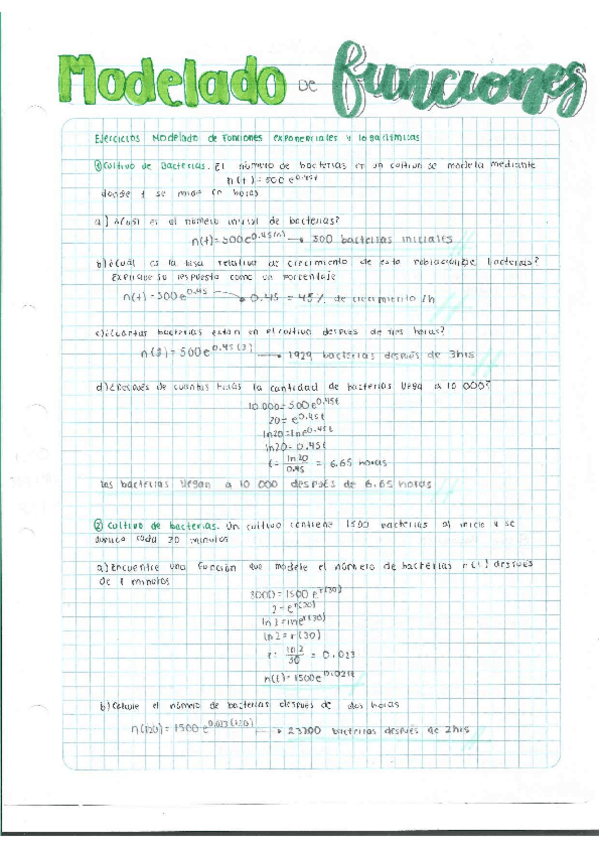 Modelado DE funciones
Ejercicios Modelado de Funciones exponenciales y logaritmicas
① Cultivo de Bacterias. El número de bacterias en un cultivo se modela mediante
n(t)=500e^0.45t
donde t se mide en horas
a) ¿Cuál es el número inicial de bacterias?
n(t)=500e^0.45(0) → 500 bacterias iniciales
b) ¿Cuál es la tasa relativa de crecimiento de esta población de bacterias?
Exprique su respuesta como un porcentaje
n(t)=500e^0.45 → 0.45 = 45% de crecimiento /h
c) ¿Cuántas bacterias están en el cultivo después de tres horas?
n(3)=500e^0.45(3) → 1929 bacterias después de 3hrs
d) ¿Después de cuántas horas la cantidad de bacterias llega a 10 000?
10 000=500e^0.45t
20=e^0.45t
ln20=lne^0.45t
ln20=0.45t
t= ln20/0.45 = 6.65 horas
las bacterias llegan a 10 000 después de 6.65 horas
② Cultivo de bacterias. Un cultivo contiene 1500 bacterias al inicio y se
duplica cada 30 minutos
a) Encuentre una función que modele el número de bacterias n(t) después
de t minutos
3000=1500e^r(30)
2=e^r(30)
ln2=lne^r(30)
ln2=r(30)
r= ln2/30 = 0.023
n(t)=1500e^0.023t
b) Calcule el número de bacterias después de dos horas
n(120)=1500e^0.023(120) → 23700 bacterias después de 2hrs